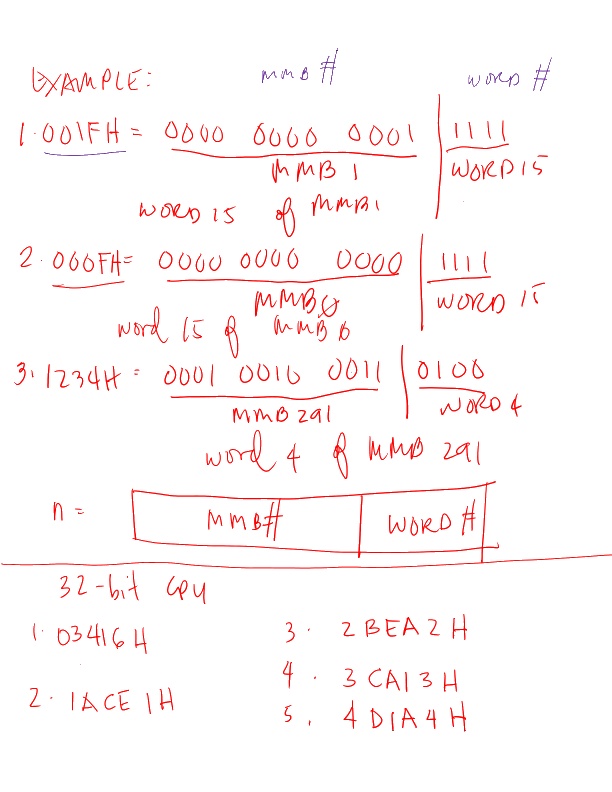 EXAMPLE: MMB # WORD #
1. 001FH = 0000 0000 0001 | 1111
MMB 1 WORD 15
WORD 15 of MMB1
2. 000FH = 0000 0000 0000 | 1111
MMB0 WORD 15
word 15 of MMB 0
3. 1234H = 0001 0010 0011 | 0100
MMB 291 WORD 4
word 4 of MMB 291
n = MMB# WORD #
32-bit CPU
1. 03416H
2. 1ACE1H
3. 2BEA2H
4. 3CA13H
5. 4D1A4H